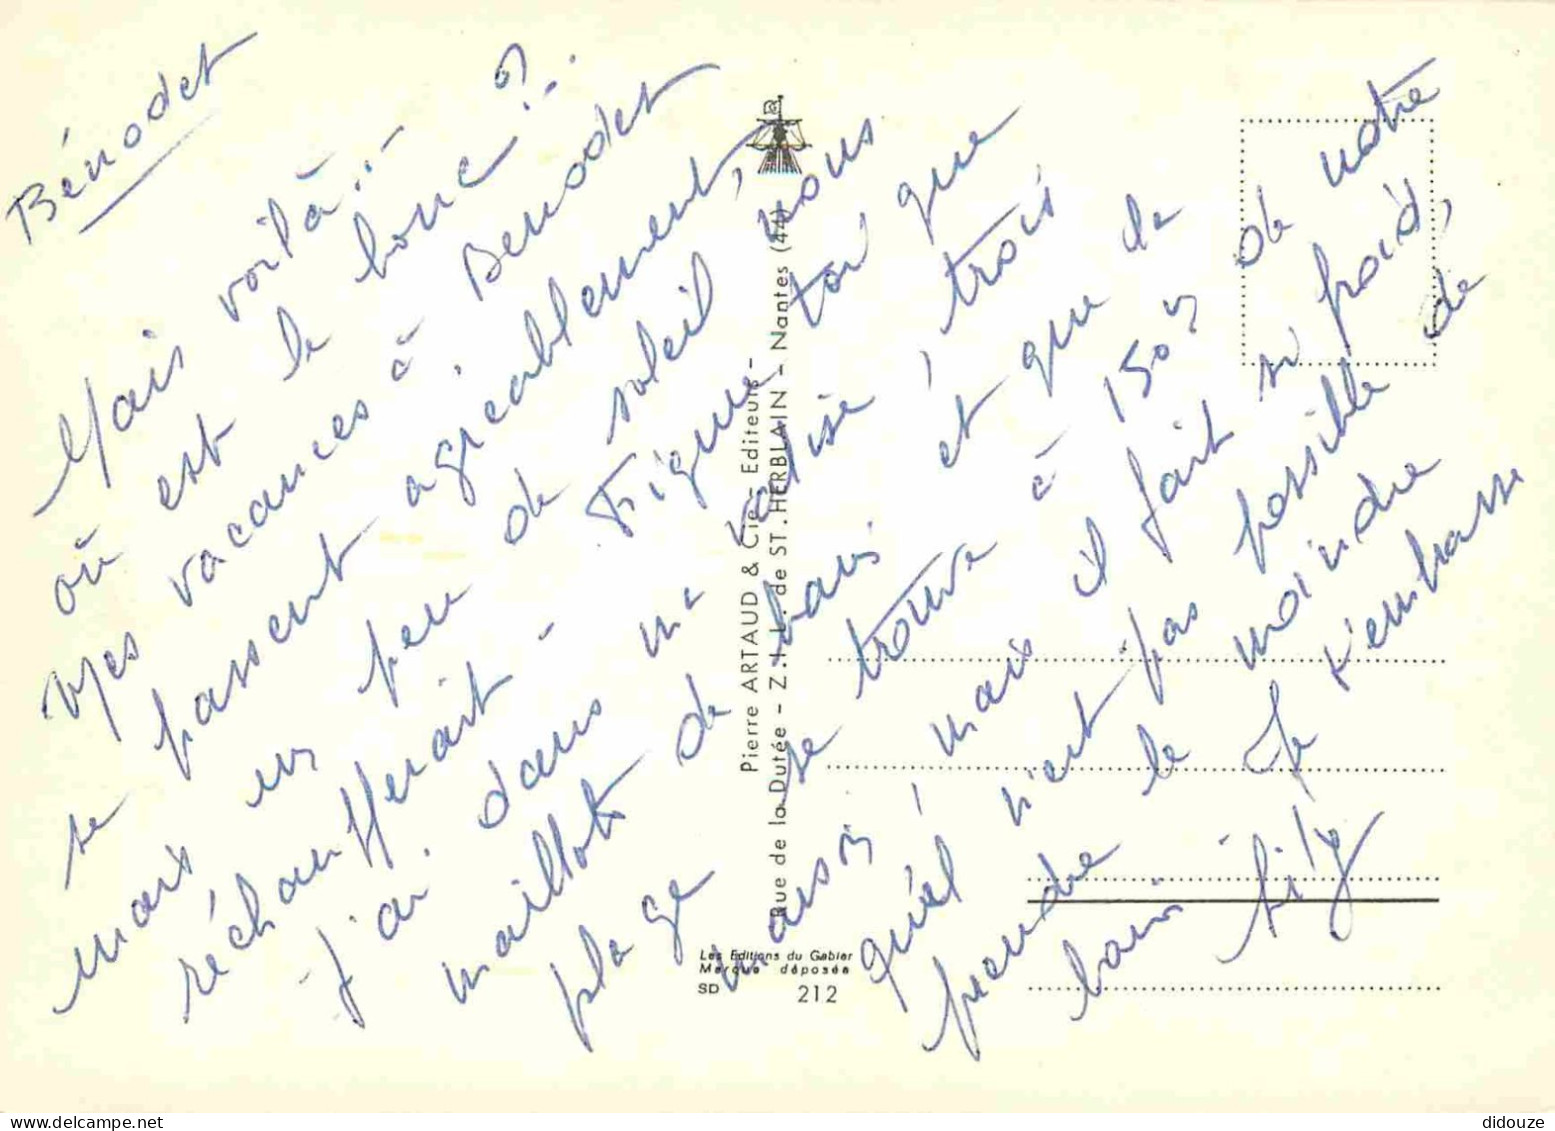 Bénodet
Mais voilà...
où est le bouc ?...
Mes vacances à Benodet
se passent agréablement,
mais un peu de soleil nous
réchaufferait - Figure toi que
j'ai dans ma valise, trois
maillots de bain et que la
plage se trouve à 150m de notre
maison, mais il fait si froid,
qu'il n'est pas possible de
prendre le moindre
bain. Je t'embrasse
Lily
Pierre ARTAUD & Cie - Editeurs -
Rue de la Dutée - Z.I.L. de ST. HERBLAIN - Nantes (44)
Les Editions du Gabier
Marque déposée
SD 212
didouze